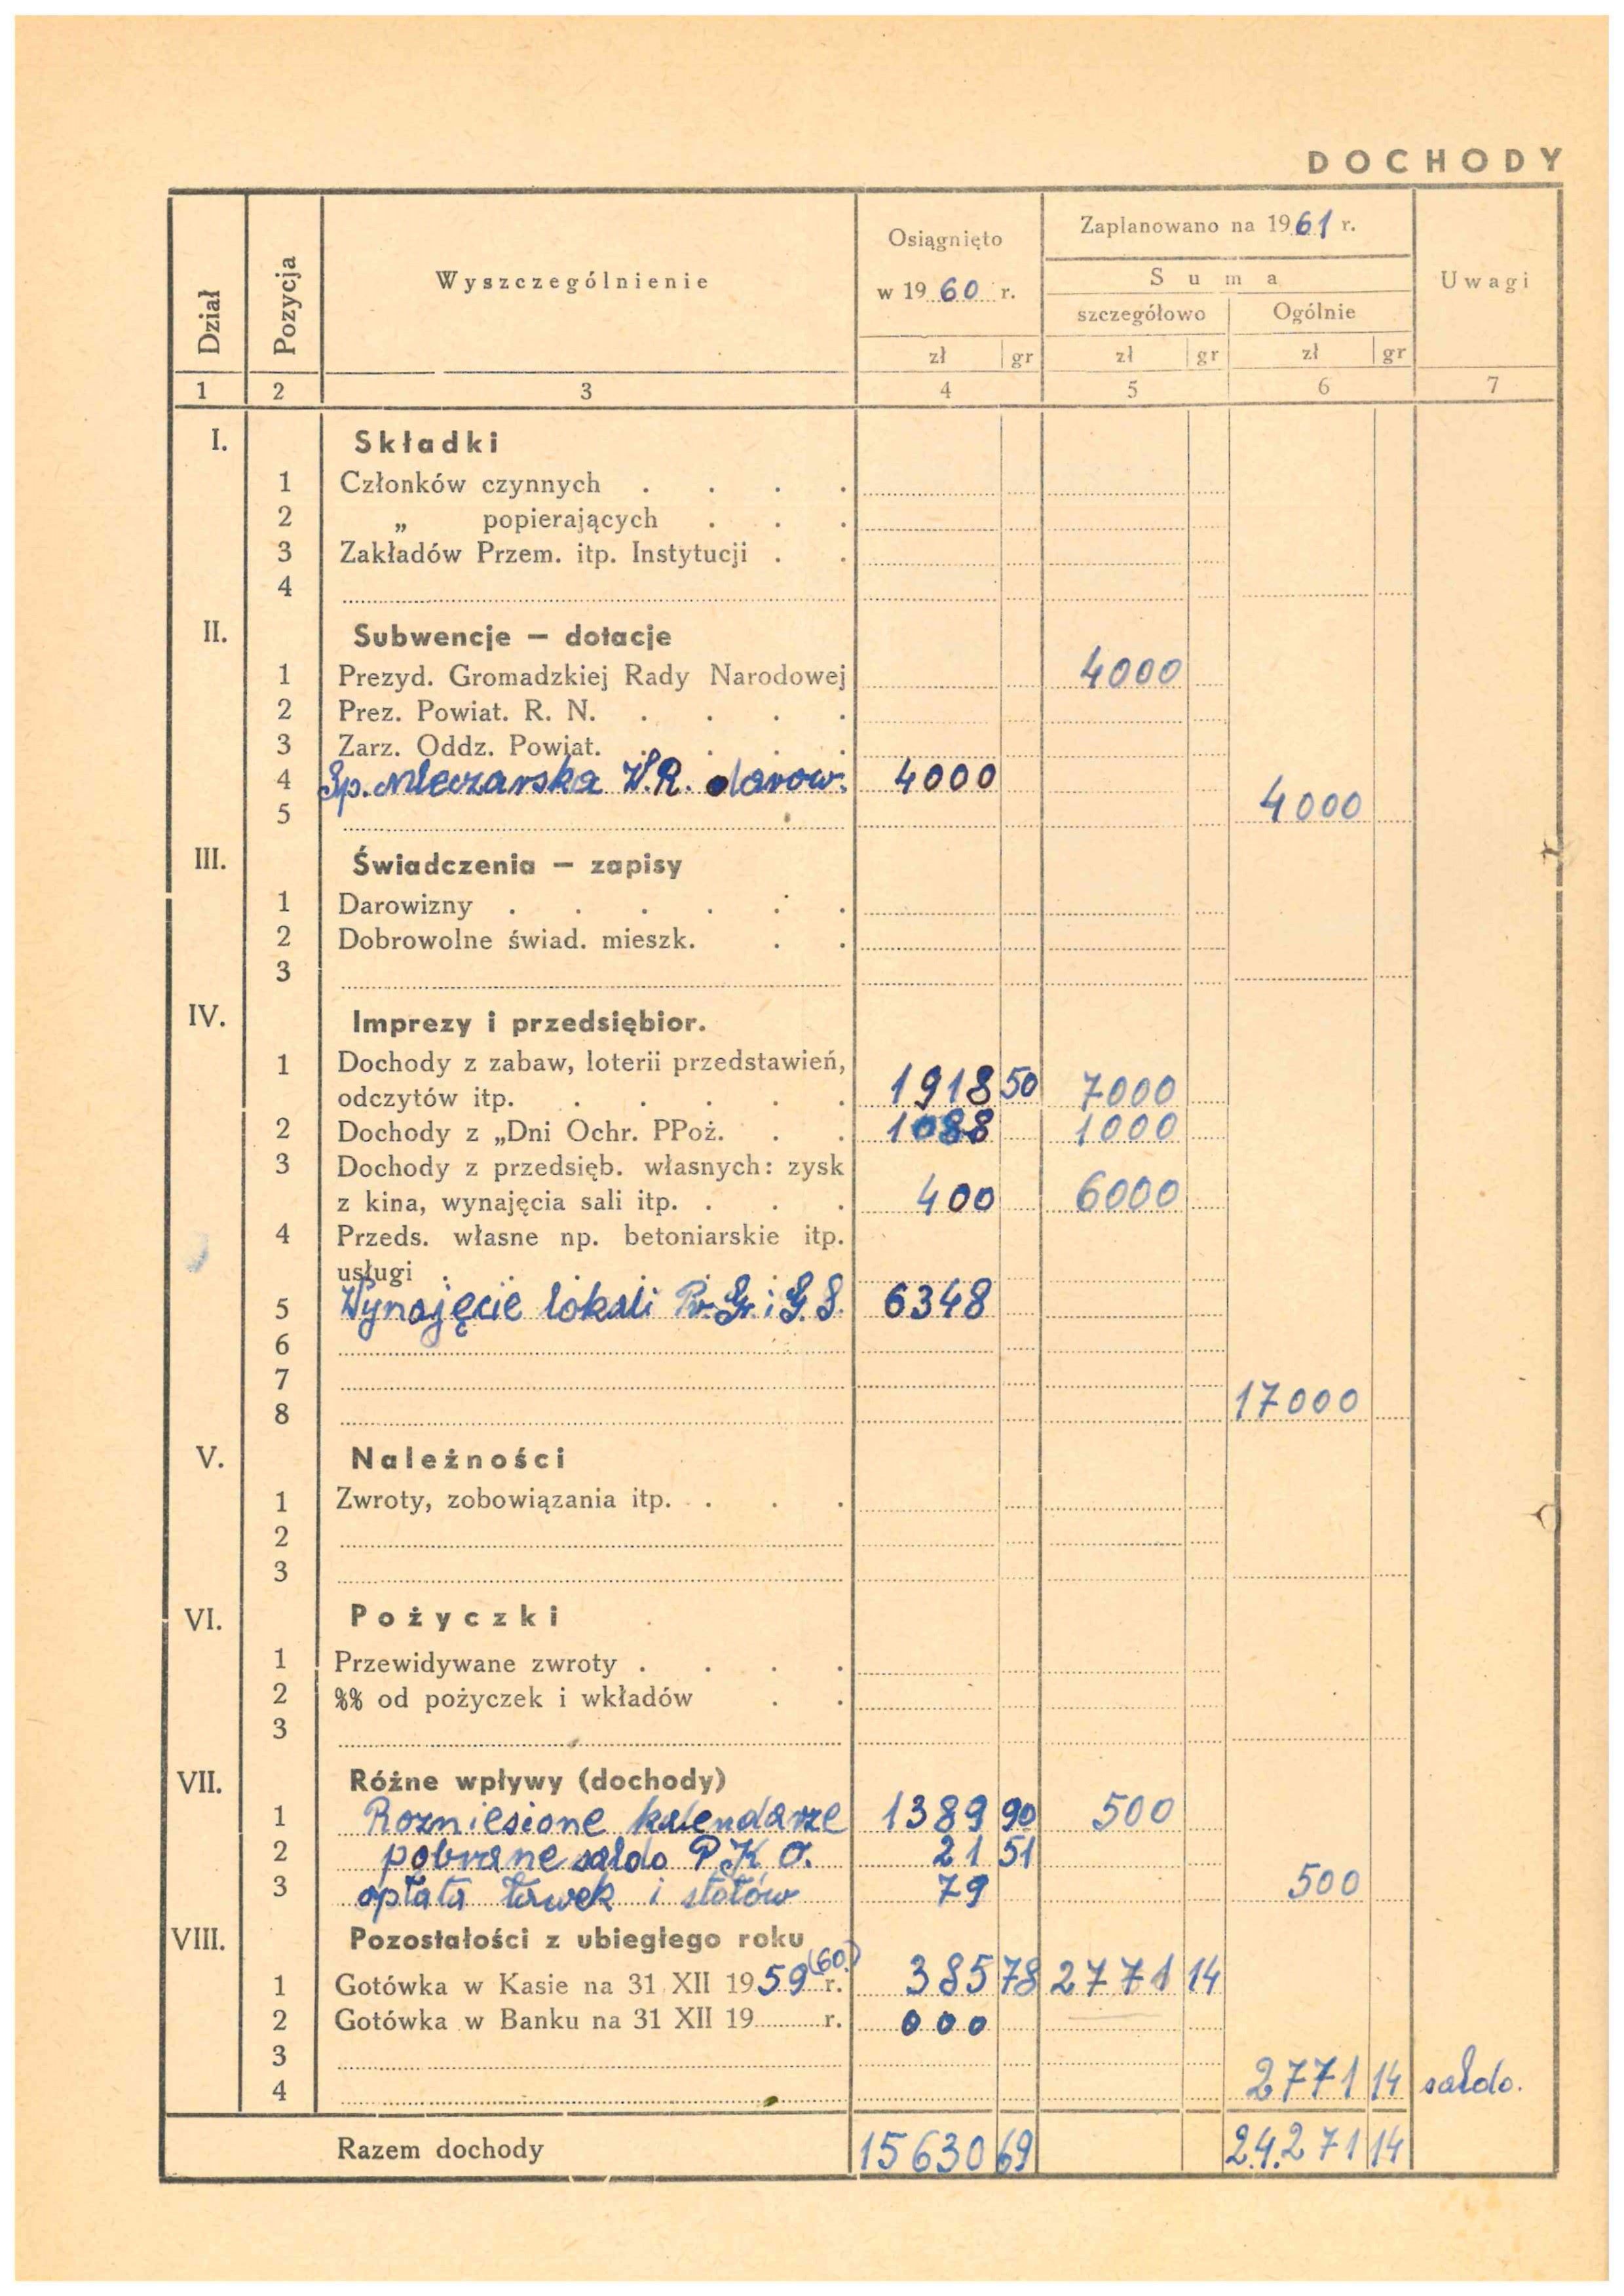 DOCHODY
Dział
Pozycja
Wyszczególnienie
Osiągnięto
w 1960 r.
Zaplanowano na 1961 r.
Suma
szczegółowo
Ogólnie
Uwagi
zł gr zł gr zł gr
1 2 3 4 5 6 7
I. Składki
1 Członków czynnych . . . .
2 „ popierających . . .
3 Zakładów Przem. itp. Instytucji . .
4
II. Subwencje — dotacje
1 Prezyd. Gromadzkiej Rady Narodowej 4000
2 Prez. Powiat. R. N. . . . .
3 Zarz. Oddz. Powiat. . . . .
4 Sp. Mleczarska W.R. darow. 4000
5 4000
III. Świadczenia — zapisy
1 Darowizny . . . . . .
2 Dobrowolne świad. mieszk. . .
3
IV. Imprezy i przedsiębior.
1 Dochody z zabaw, loterii przedstawień,
odczytów itp. . . . . . 1918 50 7000
2 Dochody z „Dni Ochr. PPoż. . . 1088 1000
3 Dochody z przedsięb. własnych: zysk
z kina, wynajęcia sali itp. . . . 400 6000
4 Przeds. własne np. betoniarskie itp.
usługi . . . . . .
5 Wynajęcie lokali Pr. Gr. i G. S. 6348
6
7
8 17000
V. Należności
1 Zwroty, zobowiązania itp. . . .
2
3
VI. Pożyczki
1 Przewidywane zwroty . . . .
2 %% od pożyczek i wkładów . .
3
VII. Różne wpływy (dochody)
1 Rozniesione kalendarze 1389 90 500
2 pobrane saldo P.K.O. 21 51
3 opłata ławek i stołów 79 500
VIII. Pozostałości z ubiegłego roku
1 Gotówka w Kasie na 31 XII 1959 (60) r. 385 78 2771 14
2 Gotówka w Banku na 31 XII 19 r. 000
3
4 2771 14 saldo.
Razem dochody 15630 69 24.271 14